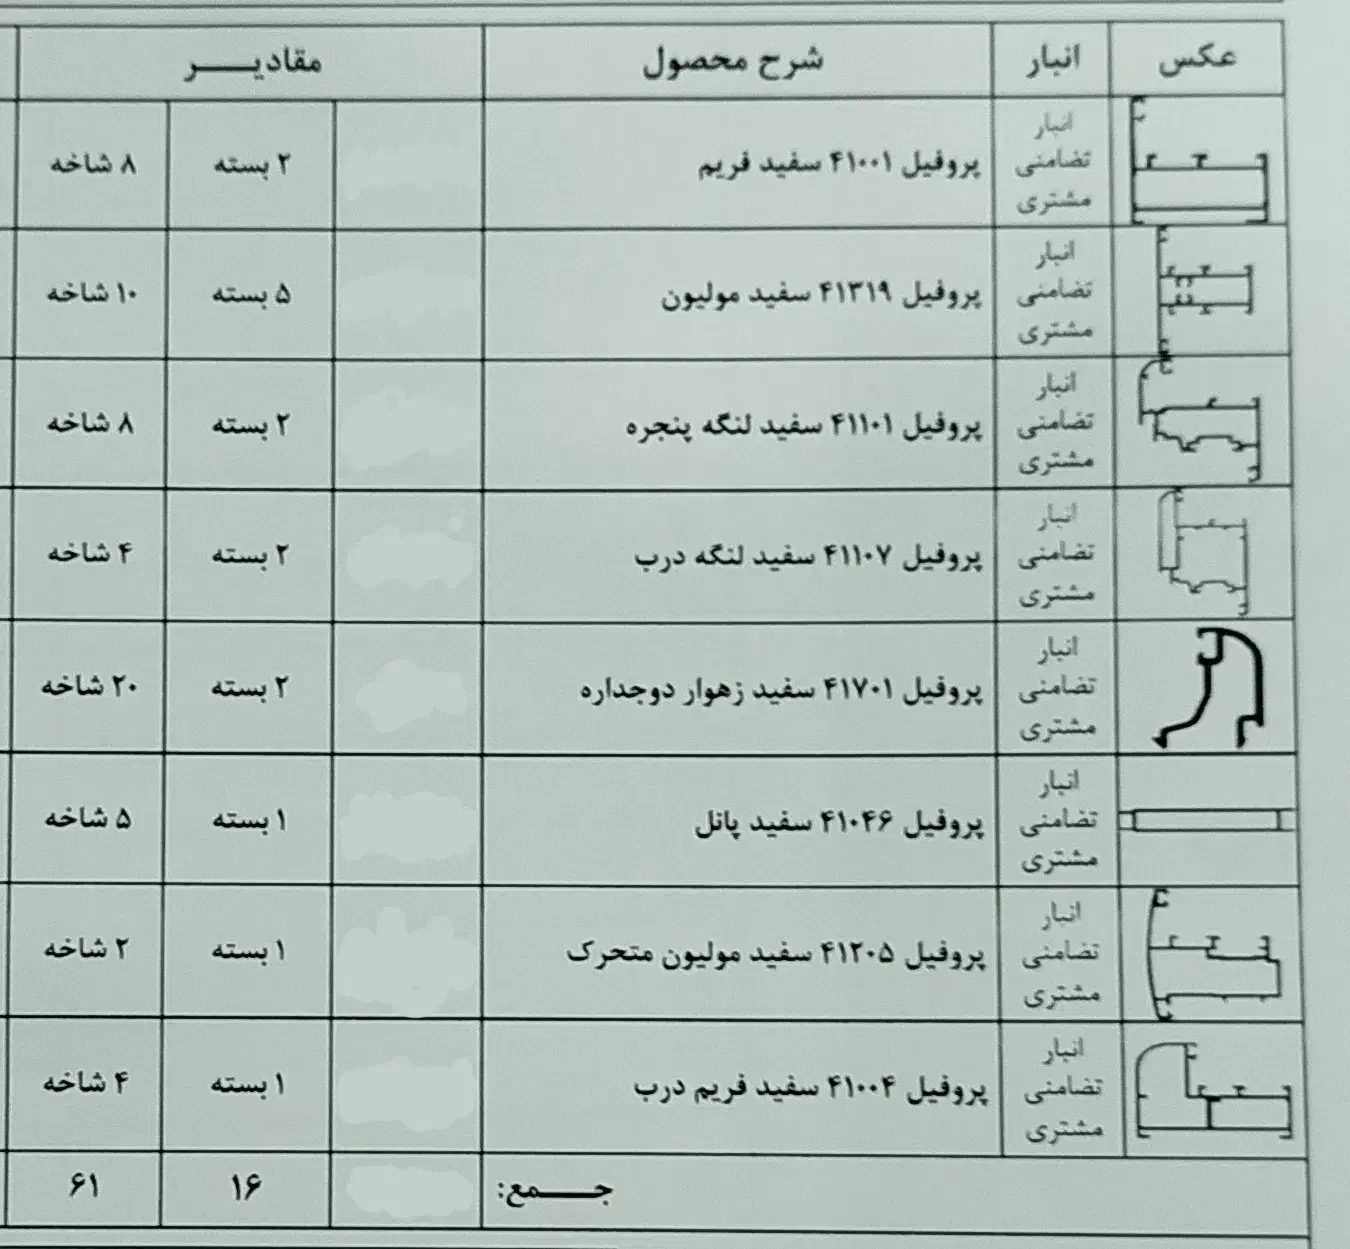 عکس انبار شرح محصول مقادیـــــر
انبار تضامنی مشتری پروفیل ۴۱۰۰۱ سفید فریم ۲ بسته ۸ شاخه
انبار تضامنی مشتری پروفیل ۴۱۳۱۹ سفید مولیون ۵ بسته ۱۰ شاخه
انبار تضامنی مشتری پروفیل ۴۱۱۰۱ سفید لنگه پنجره ۲ بسته ۸ شاخه
انبار تضامنی مشتری پروفیل ۴۱۱۰۷ سفید لنگه درب ۲ بسته ۴ شاخه
انبار تضامنی مشتری پروفیل ۴۱۷۰۱ سفید زهوار دوجداره ۲ بسته ۲۰ شاخه
انبار تضامنی مشتری پروفیل ۴۱۰۴۶ سفید پانل ۱ بسته ۵ شاخه
انبار تضامنی مشتری پروفیل ۴۱۲۰۵ سفید مولیون متحرک ۱ بسته ۲ شاخه
انبار تضامنی مشتری پروفیل ۴۱۰۰۴ سفید فریم درب ۱ بسته ۴ شاخه
جـــــمع: ۱۶ ۶۱